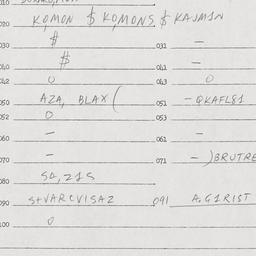 010
020 KOMON $ KOMONS $ KAJMIN
030 $ 031 –
040 $ 041 –
042 0 043 0
050 AZA, BLAX ( 051 – QKAFL81
052 0 053 –
060 – 061 –
070 – 071 – ) BRUTRE
080 50,215
090 S+VARCVISAZ 091 A.G1RIST
100 0